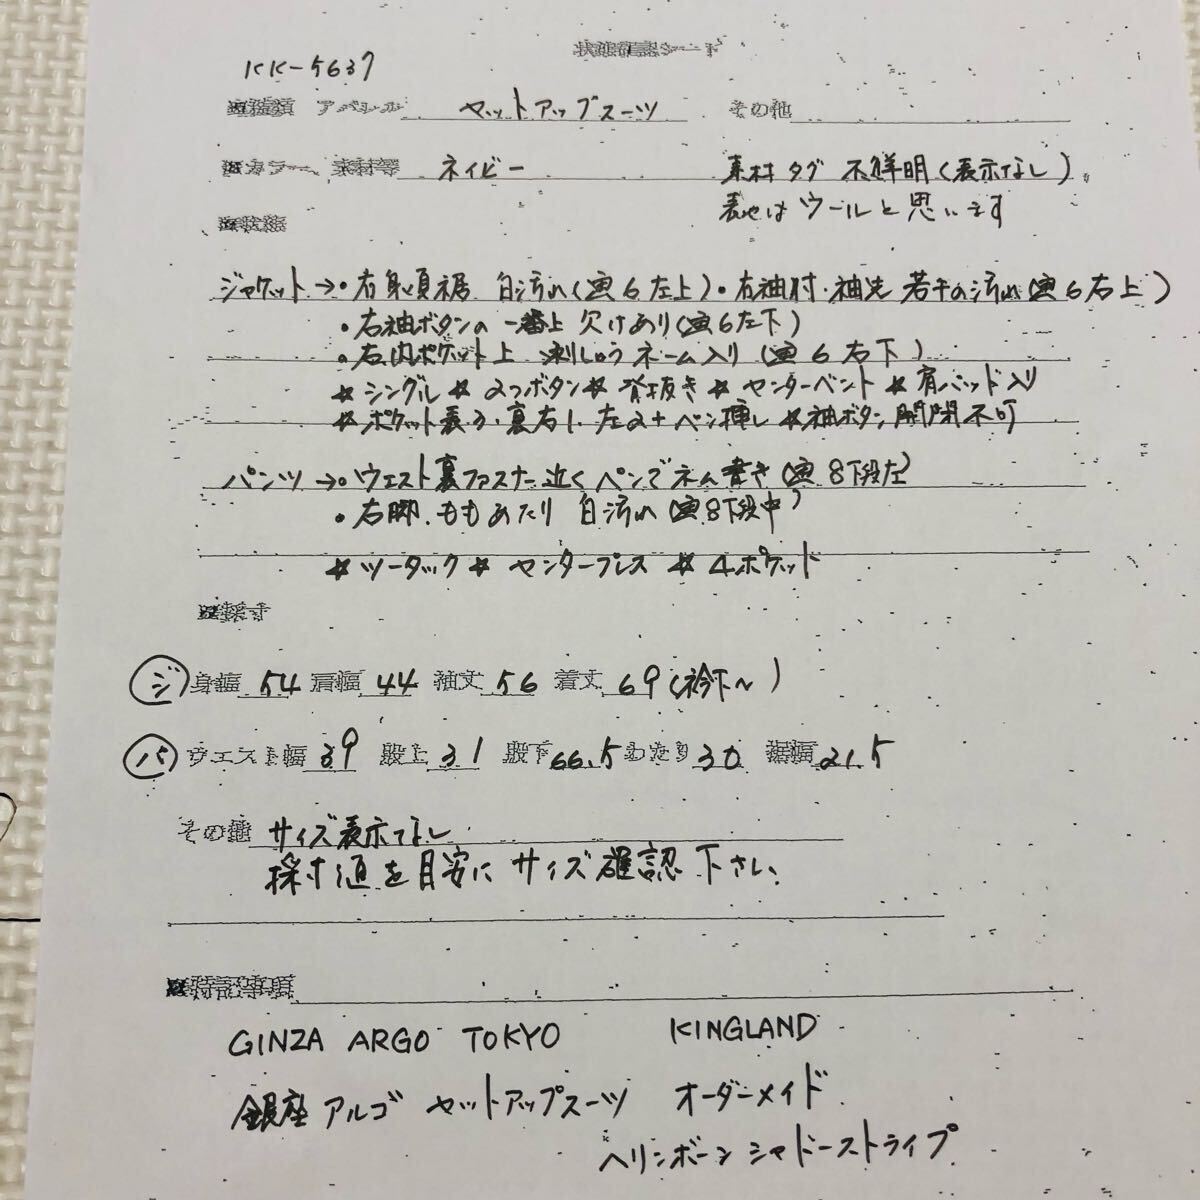 状態確認シート
KK-5637
■種類 アパレル セットアップスーツ その他
■カラー、素材等 ネイビー 素材タグ 不鮮明(表示なし)
表地はウールと思います
■状態
ジャケット→・右身頃裾 白汚れ(画6左上)・右袖肘・袖先 若干の汚れ(画6右上)
・右袖ボタンの一番上 欠けあり(画6左下)
・右内ポケット上 刺しゅうネーム入り(画6右下)
*シングル*2つボタン*背抜き*センターベント*肩パッド入り
*ポケット表3・裏右1・左2+ペン挿し*袖ボタン開閉不可
パンツ→・ウエスト裏ファスナー近くペンでネーム書き(画8下段左)
・右脚、ももあたり 白汚れ(画8下段中)
*ツータック*センタープレス*4ポケット
■採寸
ジ 身幅 54 肩幅 44 袖丈 56 着丈 69(衿下～)
パ ウエスト幅 39 股上 31 股下 66.5 わたり 30 裾幅 21.5
その他 サイズ表示なし
採寸値を目安にサイズ確認下さい。
■特記事項
GINZA ARGO TOKYO KINGLAND
銀座アルゴ セットアップスーツ オーダーメイド
ヘリンボーン シャドーストライプ